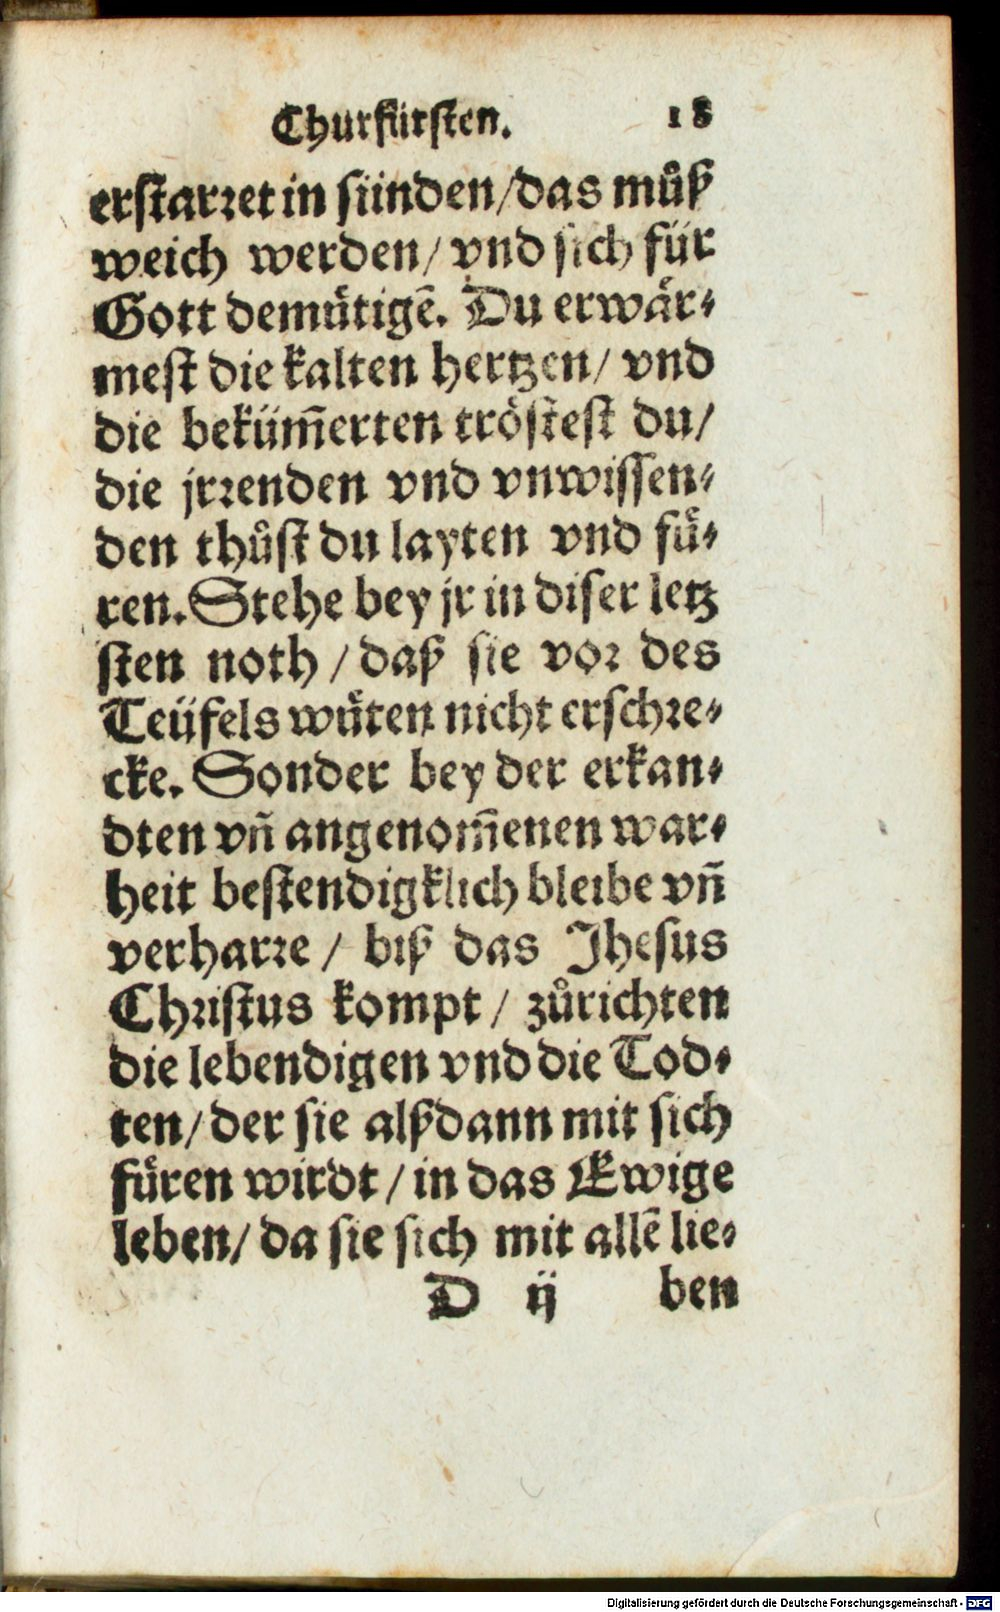 Churfürsten. 18
erstarret in sünden/das můß
weich werden/ vnd sich für
Gott demütigē. Du erwär⸗
mest die kalten hertzen/ vnd
die beküm̄erten tröstest du/
die jrrenden vnd vnwissen⸗
den thůst du layten vnd fü⸗
ren. Stehe bey jr in diser letz
sten noth / daß sie vor des
Teüfels wüten nicht erschre⸗
cke. Sonder bey der erkan⸗
dten vn̄ angenom̄enen war⸗
heit bestendigklich bleibe vn̄
verharre / biß das Jhesus
Christus kompt / zůrichten
die lebendigen vnd die Tod⸗
ten/ der sie alßdann mit sich
füren wirdt / in das Ewige
leben/ da sie sich mit allē lie⸗
D ij ben
Digitalisierung gefördert durch die Deutsche Forschungsgemeinschaft - DFG